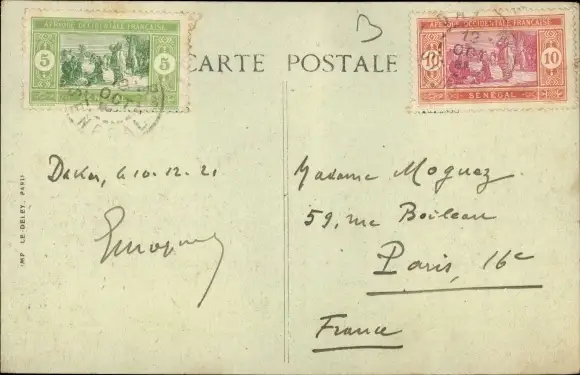 AFRIQUE OCCIDENTALE FRANÇAISE
5 5
OCT
SÉNÉGAL
CARTE POSTALE
B
AFRIQUE OCCIDENTALE FRANÇAISE
12
OCT
10 10
SÉNÉGAL
Dakar, 10.12.21
IMP. LE DELEY, PARIS
Madame Moguez
59, rue Boileau
Paris, 16e
France